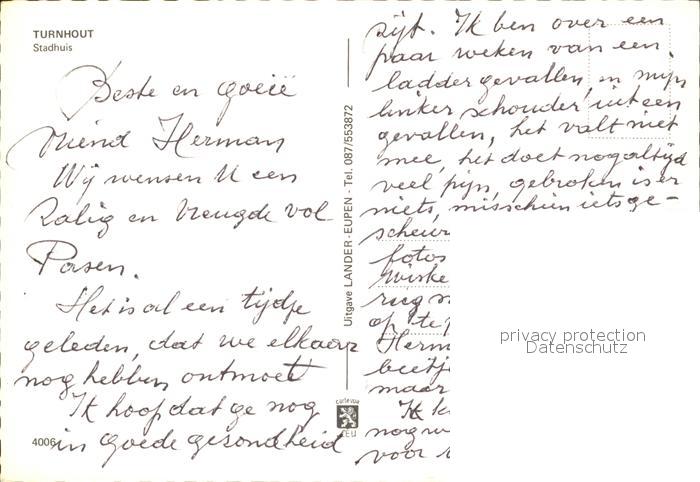 TURNHOUT
Stadhuis
Beste en goeië
vriend Herman
Wij wensen U een
Zalig en vreugde vol
Pasen.
Het is al een tijdje
geleden, dat we elkaar
nog hebben ontmoet
Ik hoop dat ge nog
in goede gesondheid
4006
Uitgave LANDER - EUPEN - Tel. 087/553872
cartevue
CELI
zijt. Ik ben over een
paar weken van een
ladder gevallen, en mijn
linker schouder uit een
gevallen, het valt niet
mee, het doet nog altijd
veel pijn, gebroken is er
niets, misschien iets ge-
scheur
fotos
Wiske
rug
op te
Herm
beetj
maar
Ik k
nog
voor
privacy protection
Datenschutz